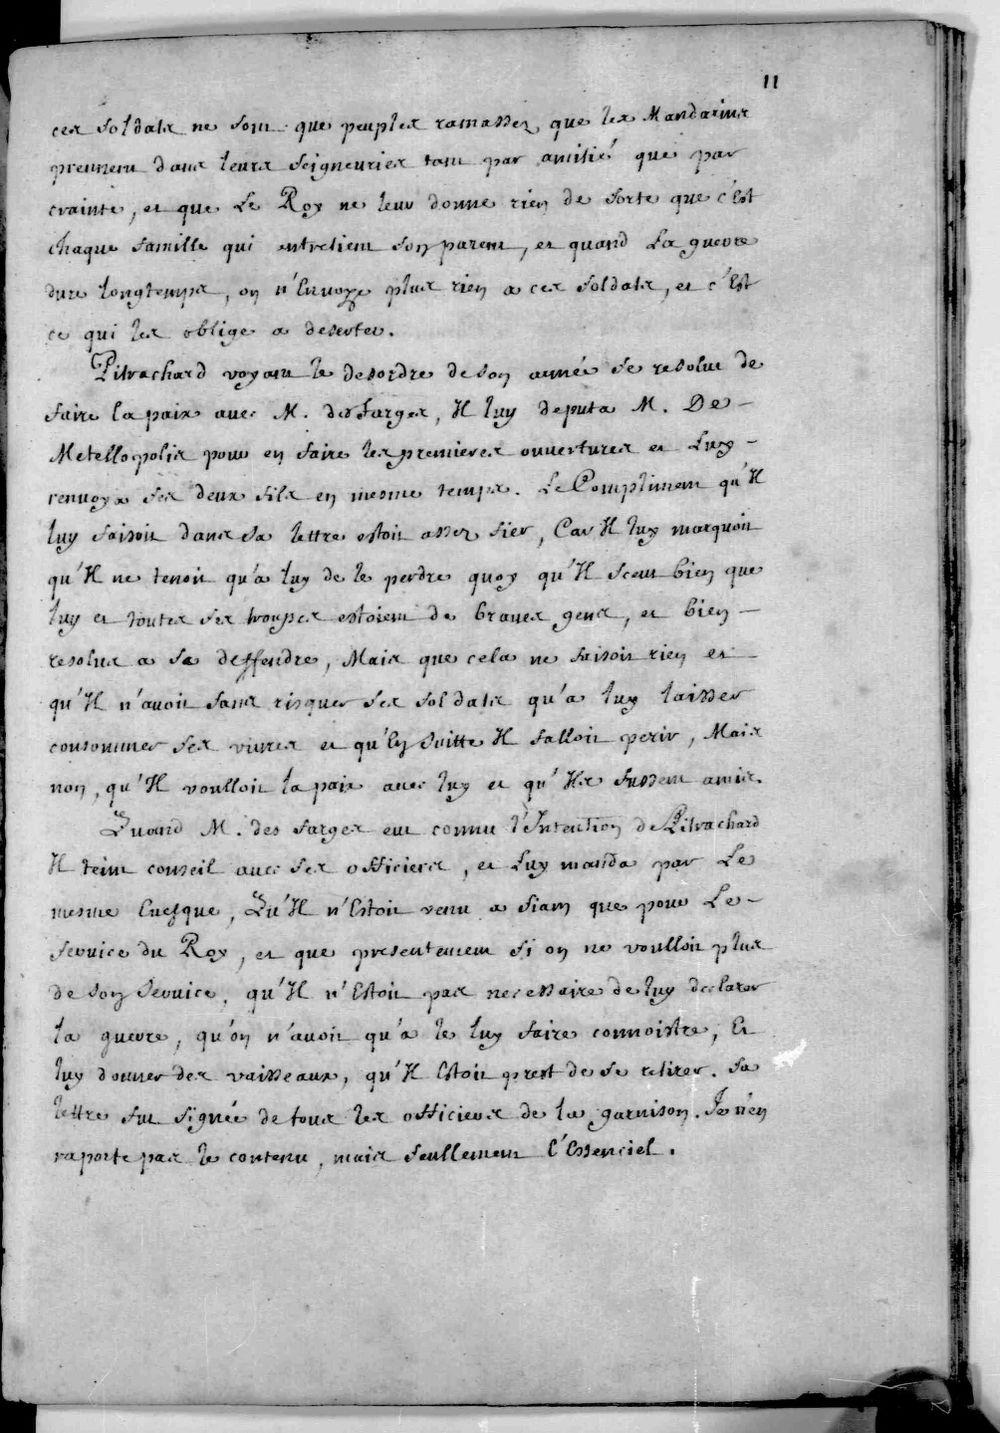 11
ces soldats ne sont que peuples ramassez que les Mandarins
prennent dans leurs seigneuries tant par amitié que par
crainte, et que Le Roy ne leur donne rien de sorte que c'est
chaque famille qui entretient son parent, et quand La guerre
dure longtemps, on n'Envoye plus rien a ces soldats, et c'Est
ce qui les oblige a deserter.
Pitrachard voyant le desordre de son armée se resolut de
faire la paix avec M. des Farges, Il luy deputa M. De-
Metellopolis pour en faire les premieres ouvertures et Luy-
renvoya ses deux fils en mesme temps. Le Compliment qu'Il
luy faisoit dans sa lettre estoit assez fier, Car Il luy marquoit
qu'Il ne tenoit qu'a luy de le perdre quoy qu'Il sceut bien que
luy et toutes ses troupes estoient de braves gens, et bien-
resolus a se deffendre, Mais que cela ne faisoit rien et-
qu'Il n'avoit sans risquer ses soldats qu'a luy laisser
consommer ses vivres et qu'En suitte Il falloit perir, Mais
non, qu'Il voulloit la paix avec luy et qu'Ils fussent amis.
Quand M. des farges eut connu l'Intention de Pitrachard
Il teint conseil avec ses officiers, et Luy manda par Le
mesme Evesque, Qu'Il n'Estoit venu a Siam que pour Le-
Service du Roy, et que presentement si on ne voulloit plus
de son service, qu'Il n'Estoit pas necessaire de luy declarer
la guerre, qu'on n'avoit qu'a le luy faire connoistre, Et
luy donner des vaisseaux, qu'Il Estoit prest de se retirer. Sa
lettre fut signée de tous les officiers de la garnison. Je n'en
raporte pas le contenu, mais seullement l'Essenciel.